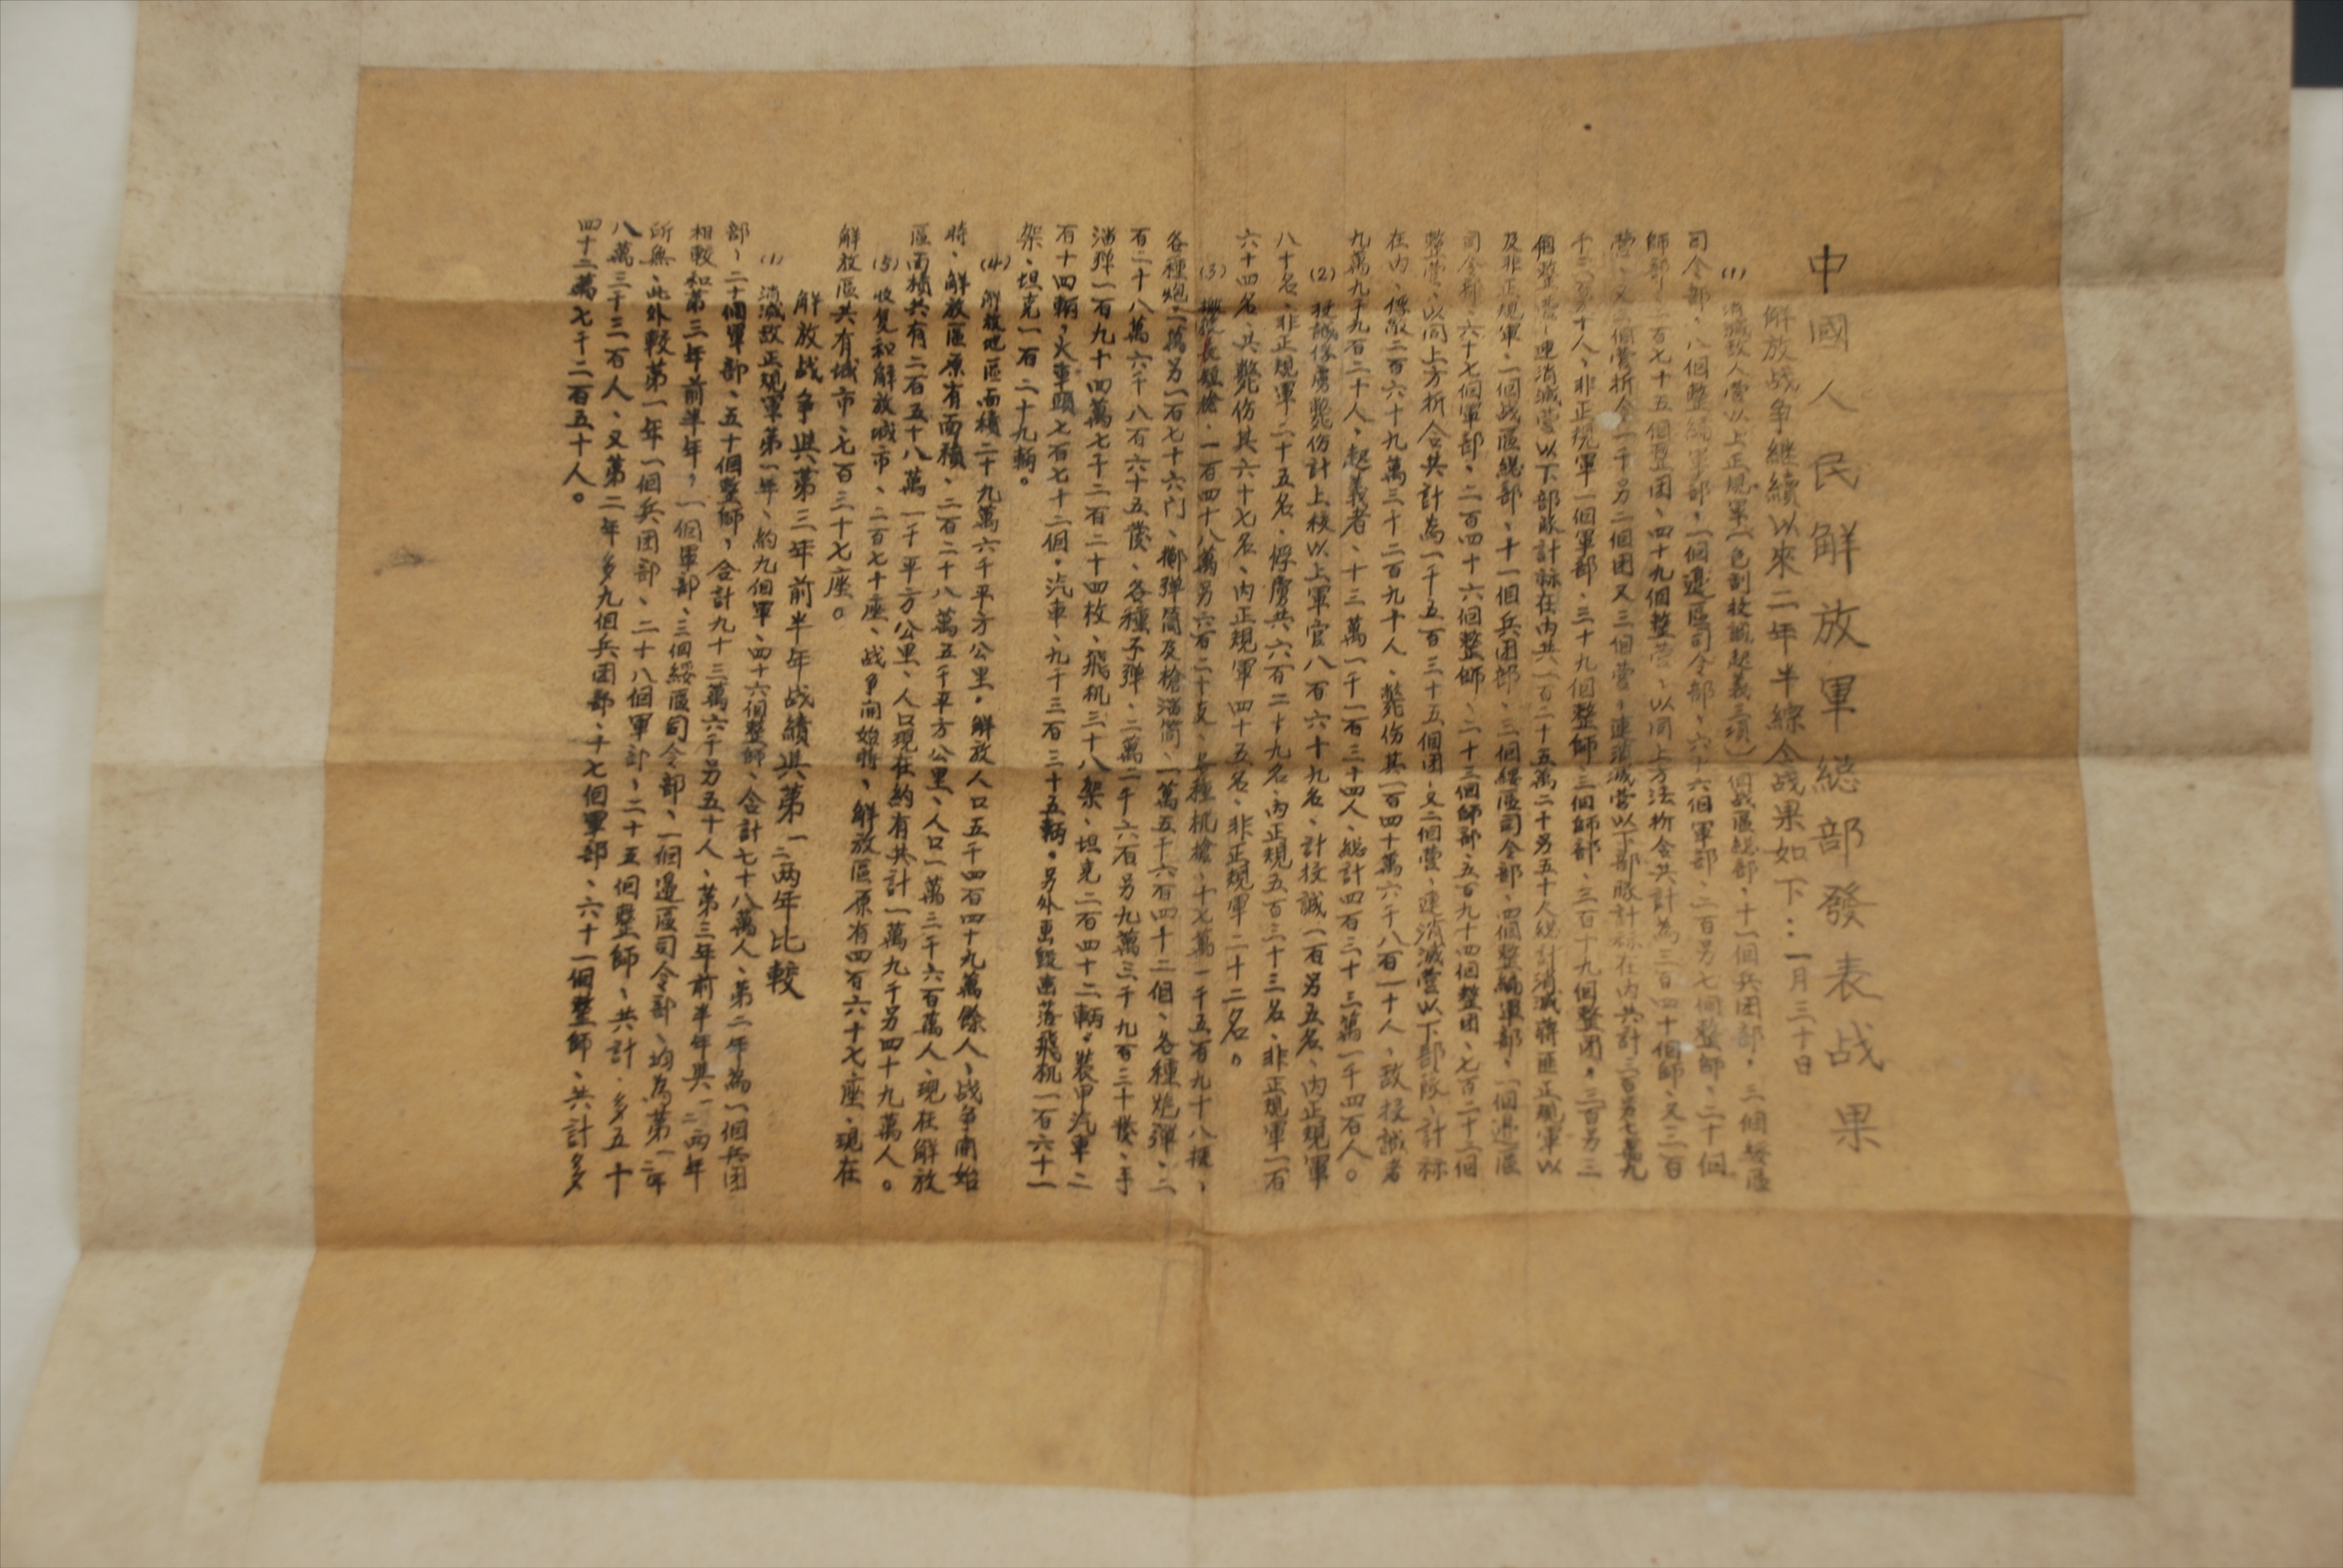 中國人民解放軍總部發表战果
解放战争継續以來二年半綜合战果如下：一月三十日
(1) 消滅敌人营以上正規軍(包刮投誠起義三項)一個战區総部、十一個兵团部，三個綏區
司令部、八個整編軍部、一個邊區司令部、六十六個軍部、二百另七個整師、二十個
師部、二百七十五個整团、四十九個整营、以同上方法折合共計為三百四十個師、又三百
千三百五十人、非正規軍一個軍部、三十九個整師、三個師部、三百十九個整团，三百另三
個整营、連消滅营以下部隊計祘在內共一百二十五萬二千另五十人総計消滅蔣匪正規軍以
及非正規軍、一個战區総部、十一個兵团部、三個綏區司令部、四個整編軍部、一個邊區
司令部、六十七個軍部、二百四十六個整師、二十三個師部、五百九十四個整团、七百二十三個
整营、以同上方折合共計為一千五百三十五個团、又二個营、連消滅营以下部隊、計祘
在內、俘敵二百六十九萬三千二百九十人、斃伤其一百四十萬六千八百一十人、敌投誠者
九萬九千九百二十人、起義者、十三萬一千一百三十四人、総計四百三十三萬一千四百人。
(2) 投誠俘虜斃伤計上校以上軍官八百六十九名、計投誠一百另五名、內正規軍
八十名、非正規軍二十五名、俘虜共六百二十九名、內正規五百三十三名、非正規軍一百
六十四名、共斃伤其六十七名、內正規軍四十五名、非正規軍二十二名。
(3) 機槍長短槍，一百四十八萬另六百二十支、各種机槍、十七萬一千五百九十八挺、
各種炮、一萬另一百七十六门、擲弹筒及槍溜筒、一萬五千六百四十二個、各種炮彈、二
百二十八萬六千八百六十五發、各種子彈、二萬二千六百另九萬三千九百三十發、手
溜彈一百九十四萬七千二百二十四枚、飛机三十八架、坦克二百四十二輛，裝甲汽車二
百十四輌、火車頭七百七十二個，汽車、九千三百三十五輌。另外曳毀击落飛机一百六十一
架、坦克一百二十九輌。
(4) 解放地區面積二十九萬六千平方公里，解放人口五千四百四十九萬餘人、战争開始
時、解放區原有面積、二百二十八萬五千平方公里、人口一萬三千六百萬人、現在解放
區面積共有二百五十八萬一千平方公里、人口現在約有共計一萬九千另四十九萬人。
(5) 收复和解放城市、二百七十座、战争開始時、解放區原有四百六十七座、現在
解放區共有城市、七百三十七座。
解放战争與第三年前半年战績與第一二两年比較
(1) 消滅敌正規軍第一年、約九個軍、四十六個整師、合計七十八萬人、第二年為一個兵团
部、二十個軍部、五十個整師，合計九十三萬六千另五十人、第三年前半年與一二两年
相較和第三年前半年，一個軍部、三個綏區司令部、一個邊區司令部、均為第一二年
所無、此外較第一年一個兵团部、二十八個軍部、二十五個整師、共計多五十
八萬三千三百人、又第二年多九個兵团部、十七個軍部、六十一個整師、共計多
四十二萬七千二百五十人。